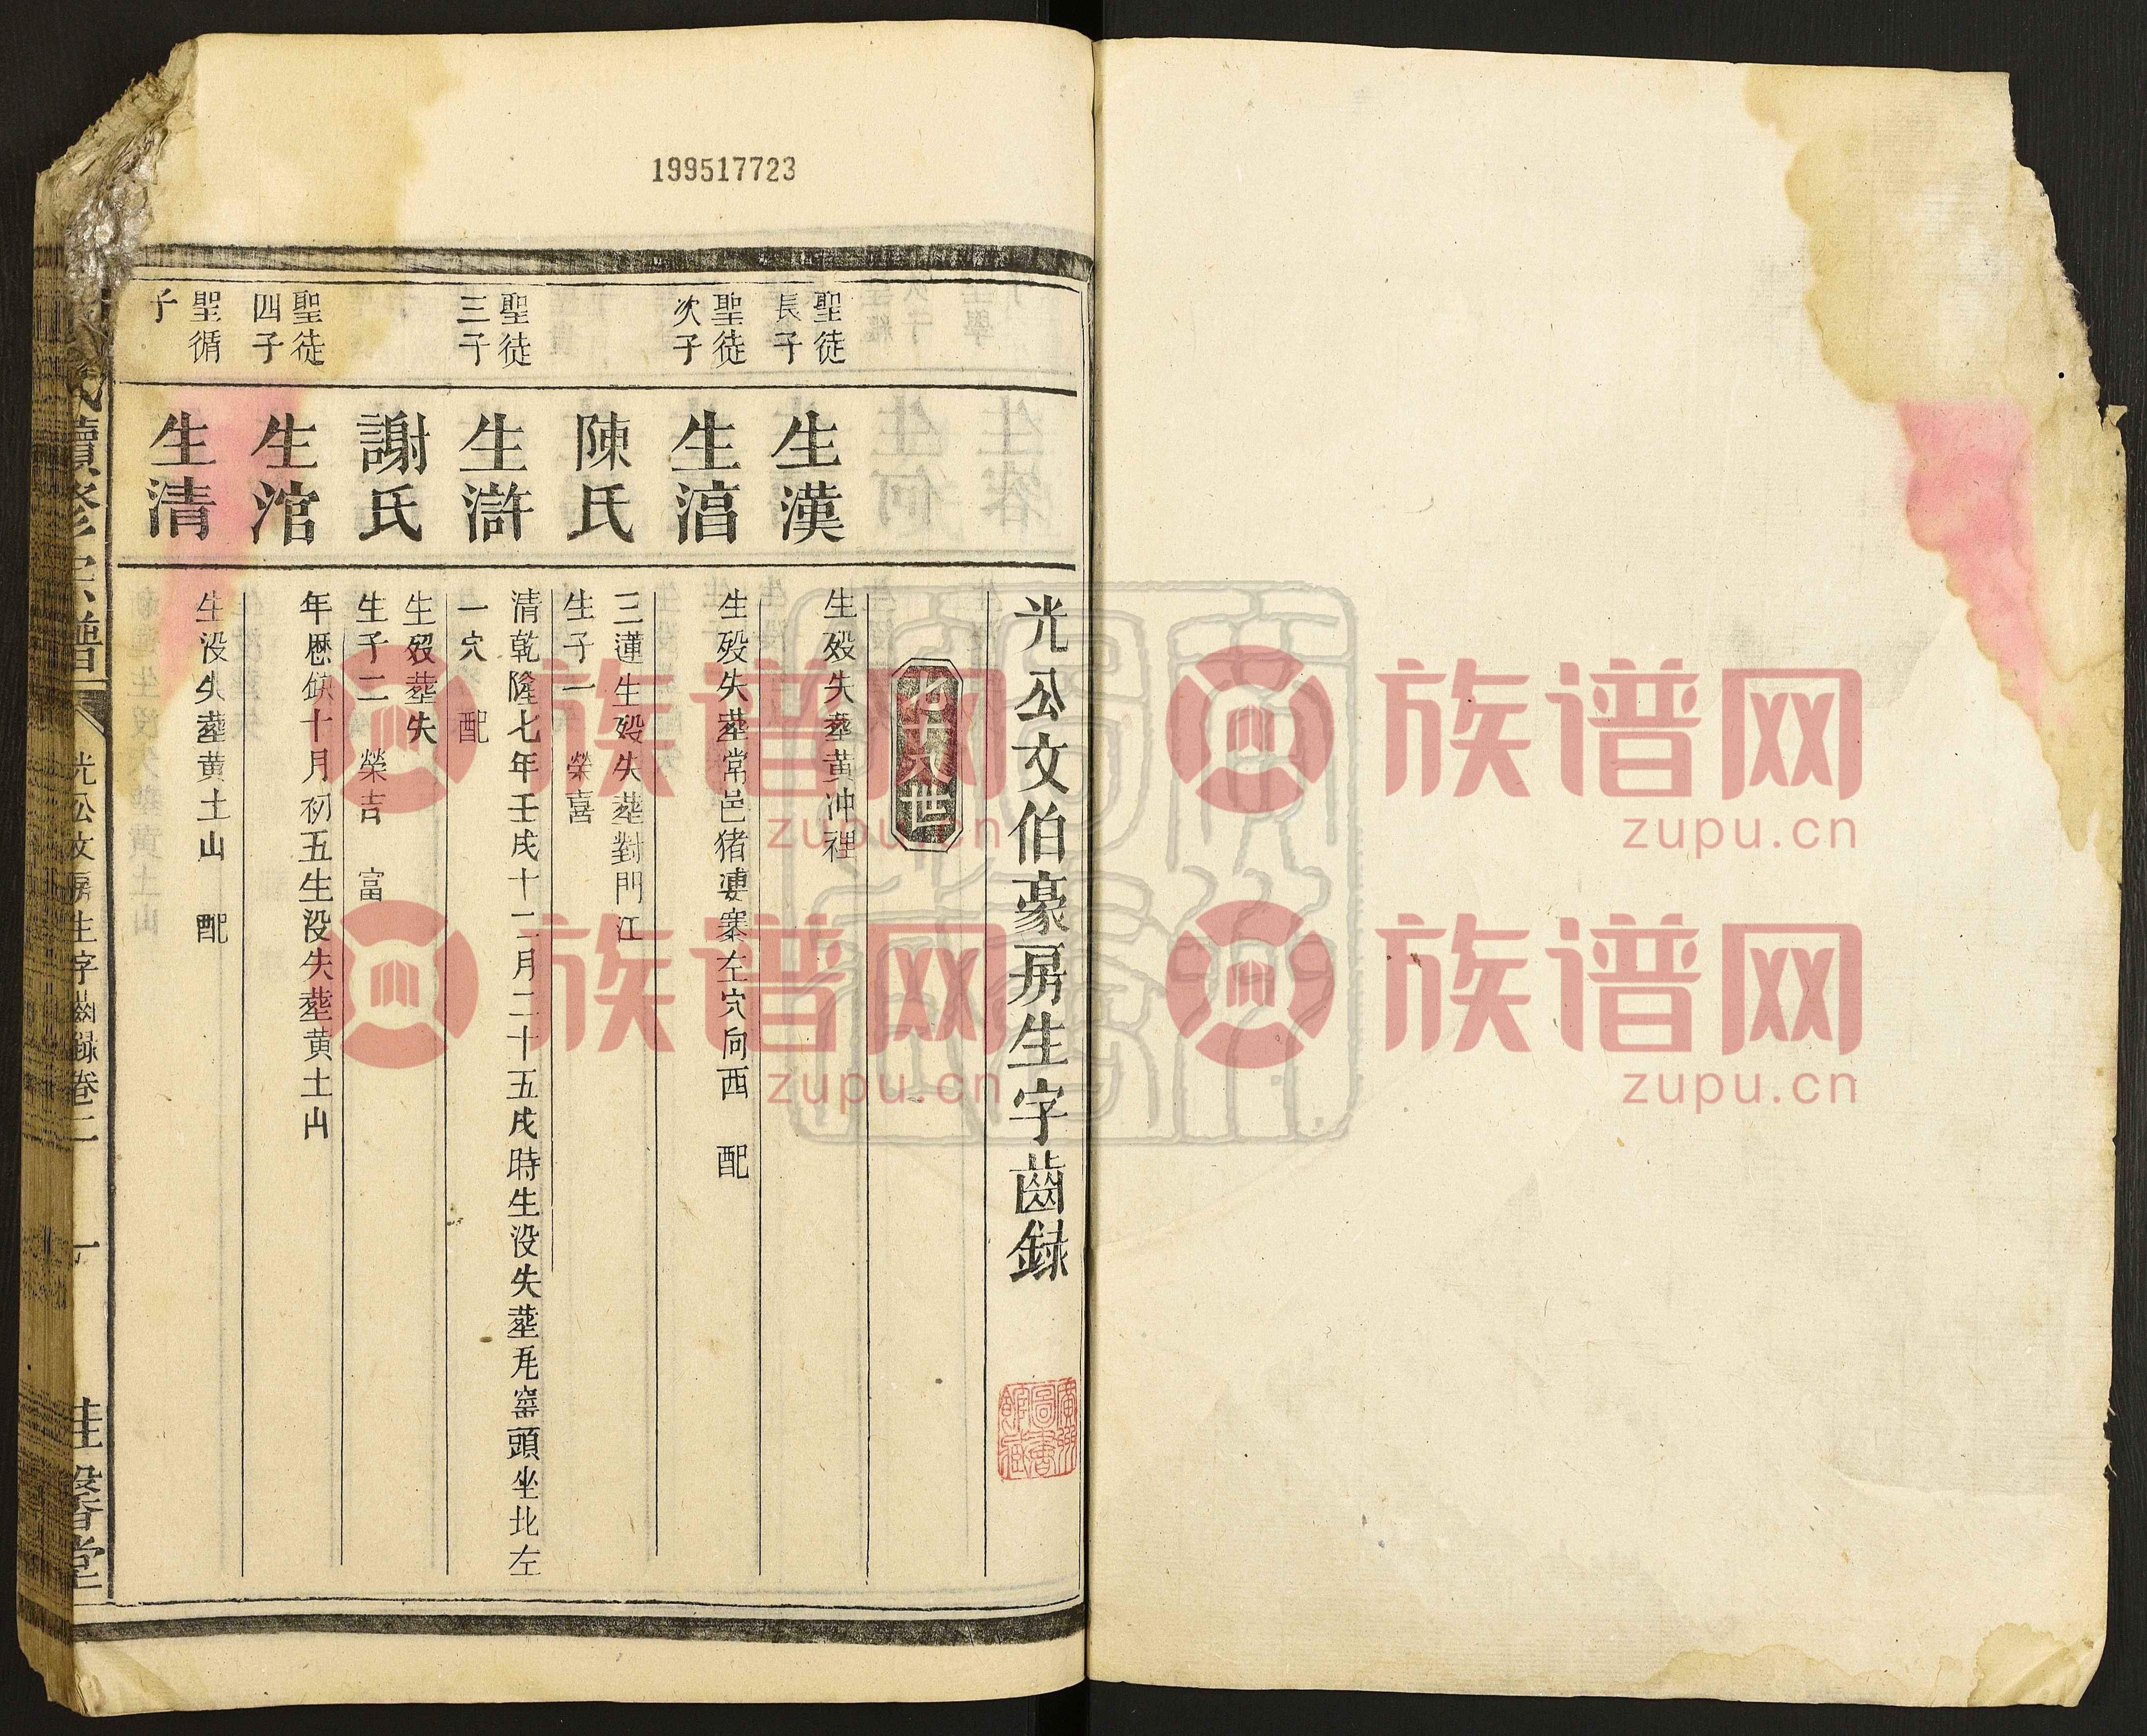 199517723
光公文伯豪房生字齒録
世
聖徒
長子
生漢
生殁失葬黄冲裡
聖徒
次子
生湻
生殁失葬常邑猪婆寨左穴向西 配
陳氏
三蓮生殁失葬對門江
生子一 榮喜
聖徒
三子
生滸
清乾隆七年壬戌十二月二十五戌時生没失葬瓦窑頭坐北左
一穴 配
謝氏
生殁葬失
生子二 榮吉 富
聖徒
四子
生涫
年歷缺十月初五生没失葬黄土山
聖循
子
生清
生没失葬黄土山 配
氏續修宗譜
光公文房生字齒録卷二
一
桂馨堂
廣州
圖書
館藏
族谱网
zupu.cn
族谱网
zupu.cn
族谱网
zupu.cn
族谱网
zupu.cn